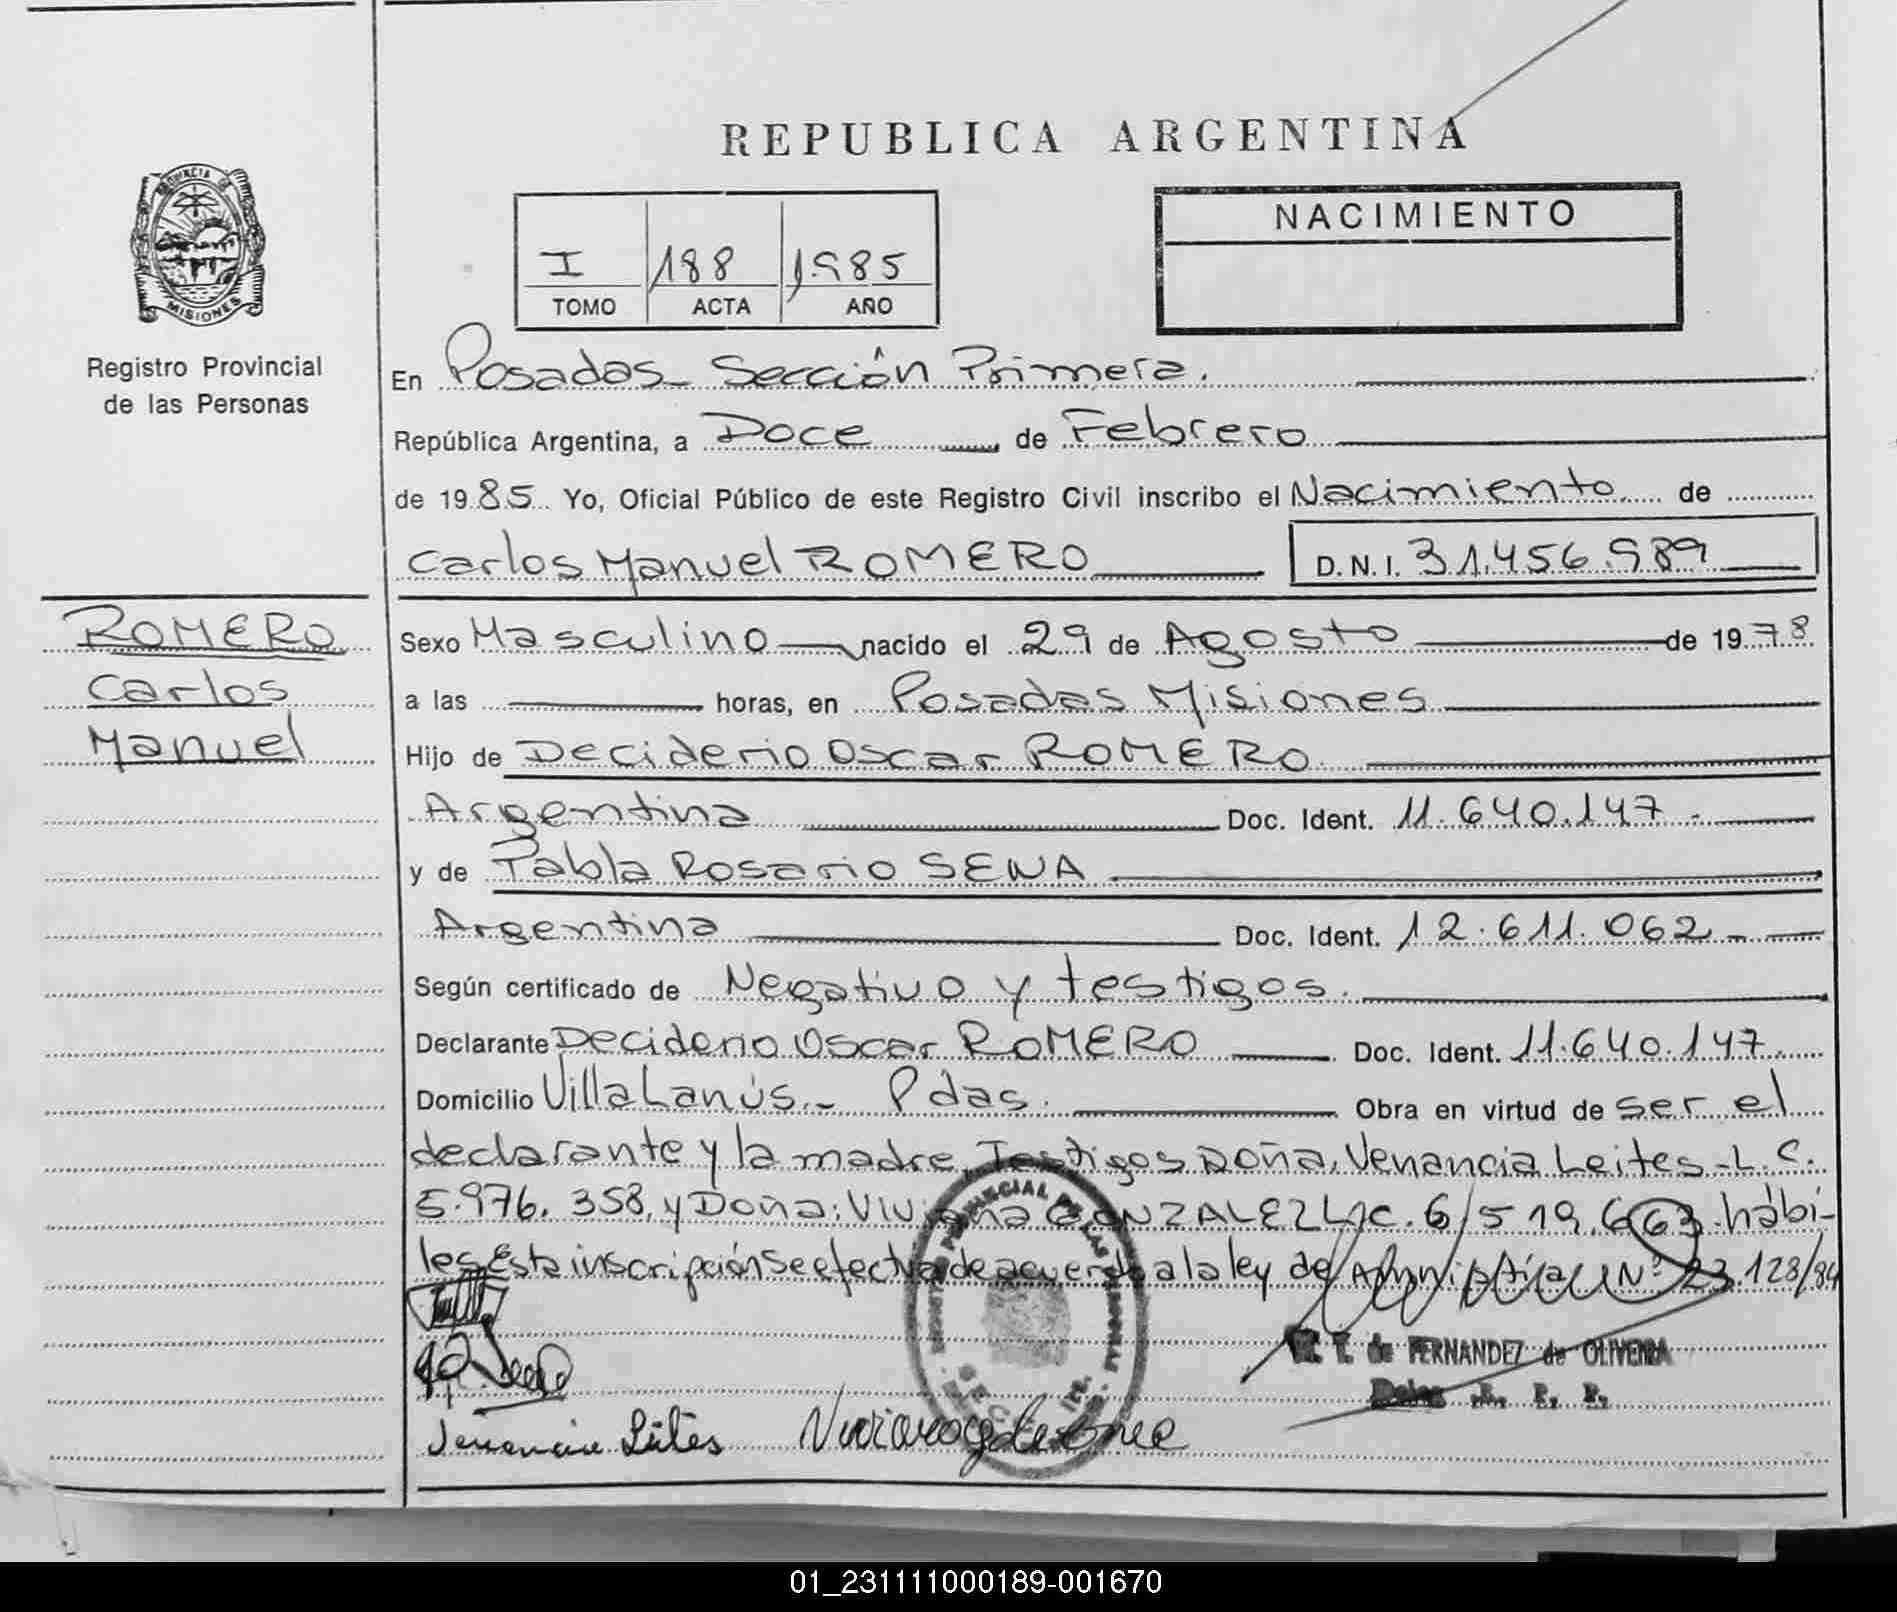 REPUBLICA ARGENTINA
PROVINCIA DE
MISIONES
Registro Provincial
de las Personas
I 188 1985
TOMO ACTA AÑO
NACIMIENTO
En Posadas - Sección Primera.
República Argentina, a Doce de Febrero
de 1985 Yo, Oficial Público de este Registro Civil inscribo el Nacimiento de
Carlos Manuel ROMERO D.N.I. 31.456.989
ROMERO
Carlos
Manuel
Sexo Masculino nacido el 29 de Agosto de 1978
a las horas, en Posadas Misiones
Hijo de Deciderio Oscar ROMERO
Argentina Doc. Ident. 11.640.147-
y de Pabla Rosario SENA
Argentina Doc. Ident. 12.611.062-
Según certificado de Negativo y testigos.
Declarante Deciderio Oscar ROMERO Doc. Ident. 11.640.147
Domicilio Villa Lanús.- Pdas. Obra en virtud de ser el
declarante y la madre. Testigos Doña. Venancia Leites - L.C.
5.976.358, y Doña: Viviana GONZALEZ L.C. 6.519.663 hábi-
les. Esta inscripción se efectúa de acuerdo a la ley de Amnistía Nº 23.128/84
REGISTRO PROVINCIAL DE LAS PERSONAS
T. de FERNANDEZ de OLIVEIRA
Deleg. R. P. P.
Venancia Leites
01_231111000189-001670